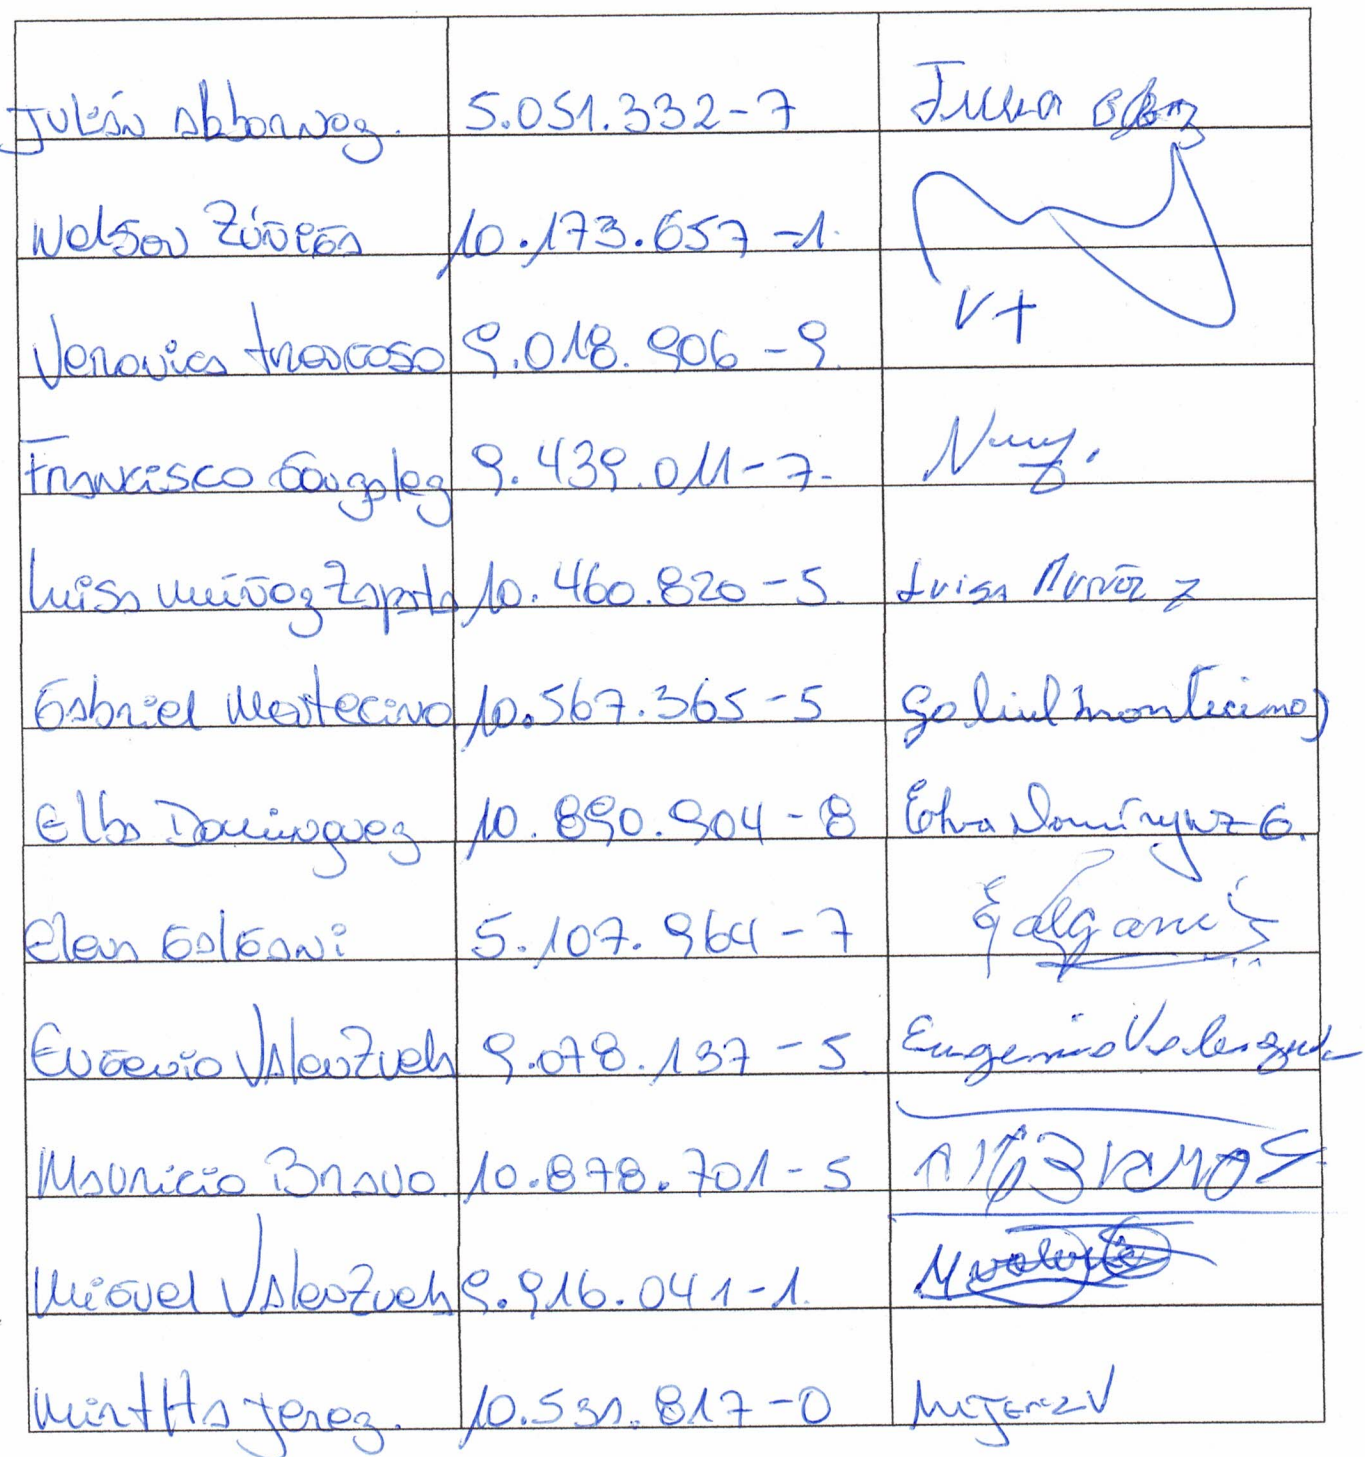 Julián Albornoz. 5.051.332-7
Nelson Zúñiga 10.173.657-1.
Veronica Troncoso 9.018.906-9
Francisco González 9.439.011-7.
Luisa Muñoz Zapata 10.460.820-5 Luisa Muñoz Z
Gabriel Montecino 10.567.365-5 Gabriel Montecinos
Elba Dominguez 10.890.904-8 Elva Domínguez G.
Elena Galgani 5.107.964-7 Galgani
Eugenio Valenzuela 9.078.137-5 Eugenio Valenzuela
Mauricio Bravo 10.878.701-5
Miguel Valenzuela 9.916.041-1.
Mirtha Jerez. 10.531.817-0 MJerez V